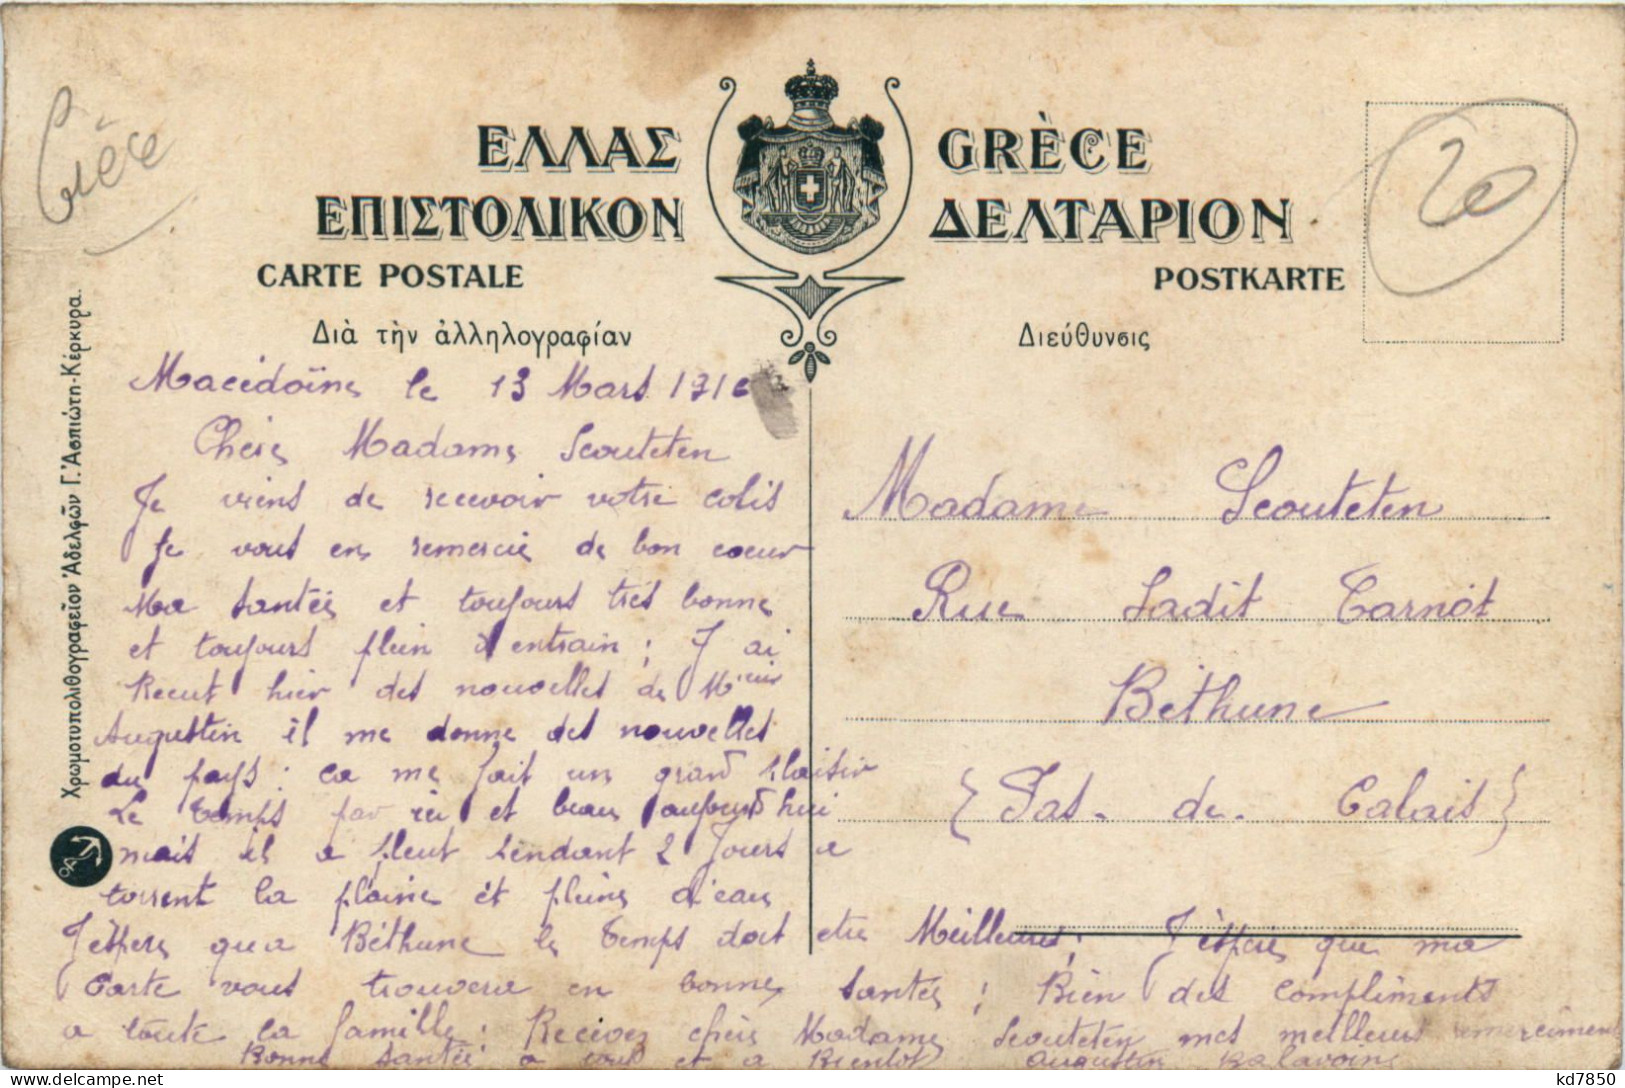 Grèce
20
ΕΛΛΑΣ GRÈCE
ΕΠΙΣΤΟΛΙΚΟΝ ΔΕΛΤΑΡΙΟΝ
CARTE POSTALE POSTKARTE
Διὰ τὴν ἀλληλογραφίαν Διεύθυνσις
Χρωμοτυπολιθογραφεῖον Ἀδελφῶν Γ. Ἀσπιώτη-Κέρκυρα.
Macédoine le 13 Mars 1916
Chère Madame Scouteten
Je viens de recevoir votre colis
Je vous en remercie de bon coeur
Ma santée et toujours très bonne
et toujours plein d'entrain ; J'ai
Recut hier des nouvelles de Mr
Augustin il me donne des nouvelles
du pays : ca me fait un grand plaisir
Le temps par ici et beau aujourd'hui
mais il a pleut pendant 2 Jours a
torrent la plaine ét pleine d'eau
J'éspere qu'a Béthune le temps doit etre Meilleure ; J'éspere que ma
Carte vous trouvera en bonne santée ; Bien des compliments
a toute la famille ; Recevez chère Madame Scouteten mes meilleurs remerciment
Bonne santée a vous et a Bientot Augustin Balavoine
Madame Scouteten
Rue Sadit Carnot
Béthune
(Pas-de-Calais)
kd7850